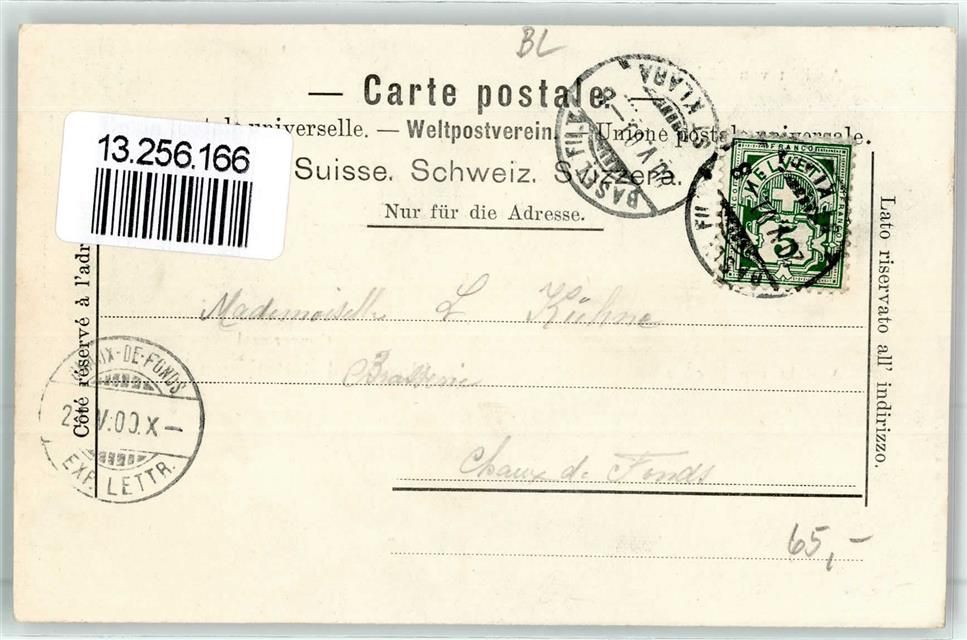 BL
— Carte postale. —
universelle. — Weltpostverein. — Unione postale universale.
13.256.166
Suisse. Schweiz. Svizzera.
Nur für die Adresse.
BASEL FIL.
ST. KLARA
FRANCO
HELVETIA
5
Côté réservé à l'adr
Lato riservato all' indirizzo.
Mademoiselle L Kühne
Brasserie
Chaux de Fonds
X-DE-FONDS
V.00.X—
EXP. LETTR.
65,-